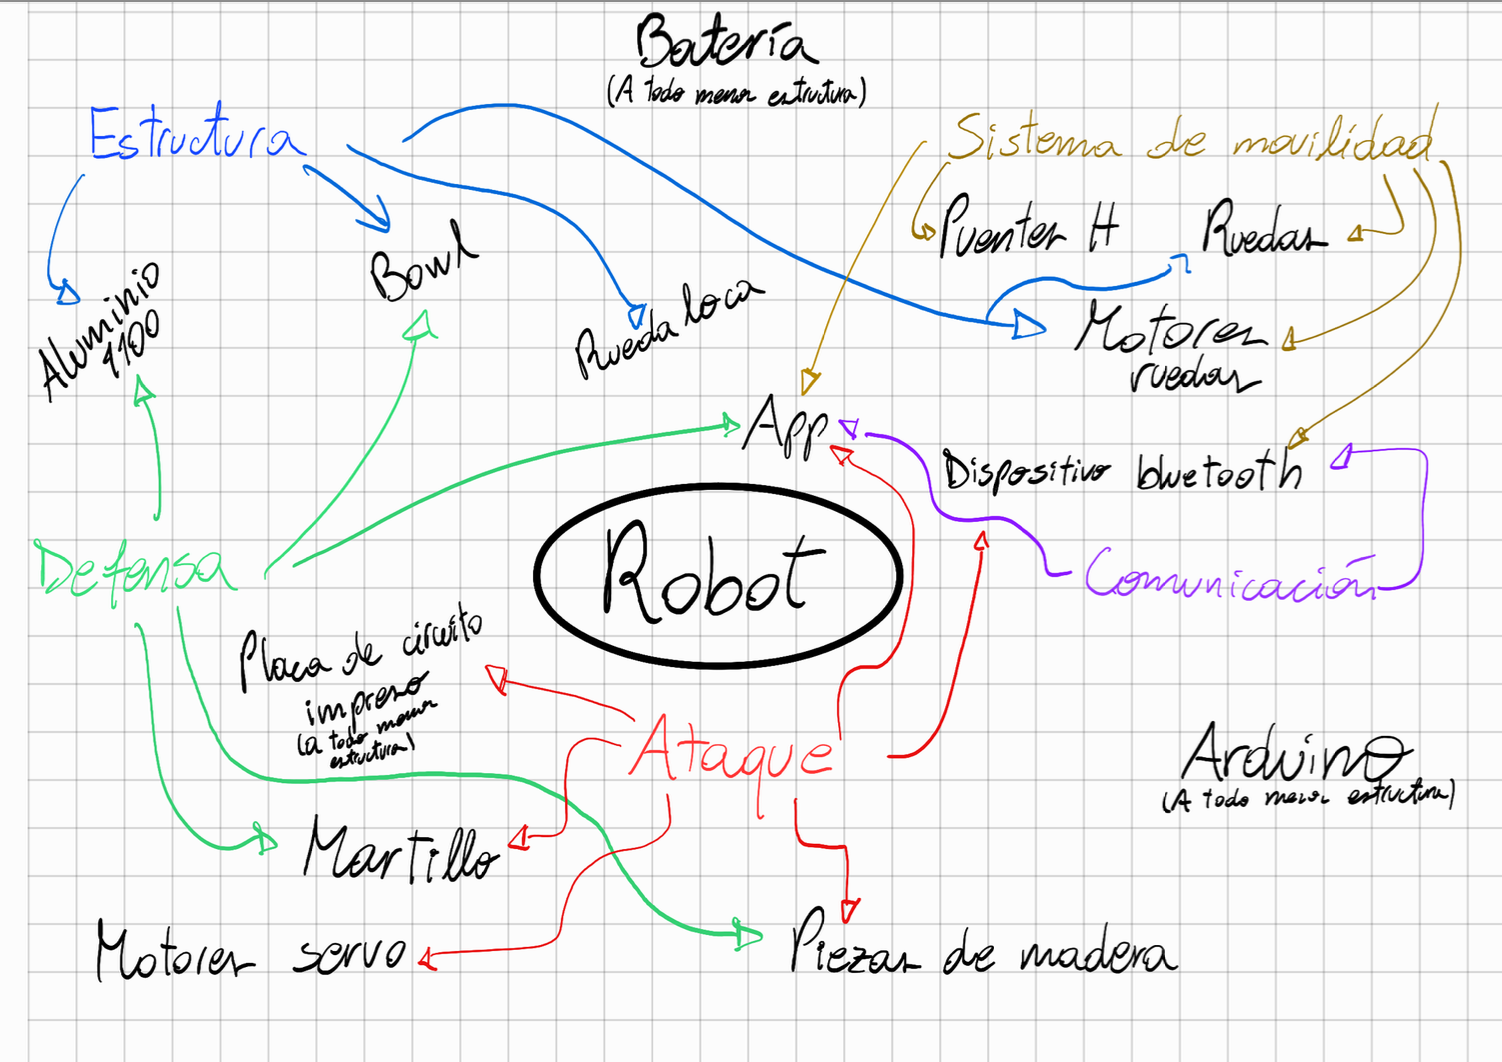 Batería
(A todo menos estructura)
Estructura
Sistema de movilidad
Puentes H
Ruedas
Bowl
Aluminio
1100
Rueda loca
Motores
ruedas
App
Dispositivo bluetooth
Robot
Defensa
Comunicación
Placa de circuito
impreso
(a todo menos
estructura)
Ataque
Arduino
(A todo menos estructura)
Martillo
Motores servo
Piezas de madera